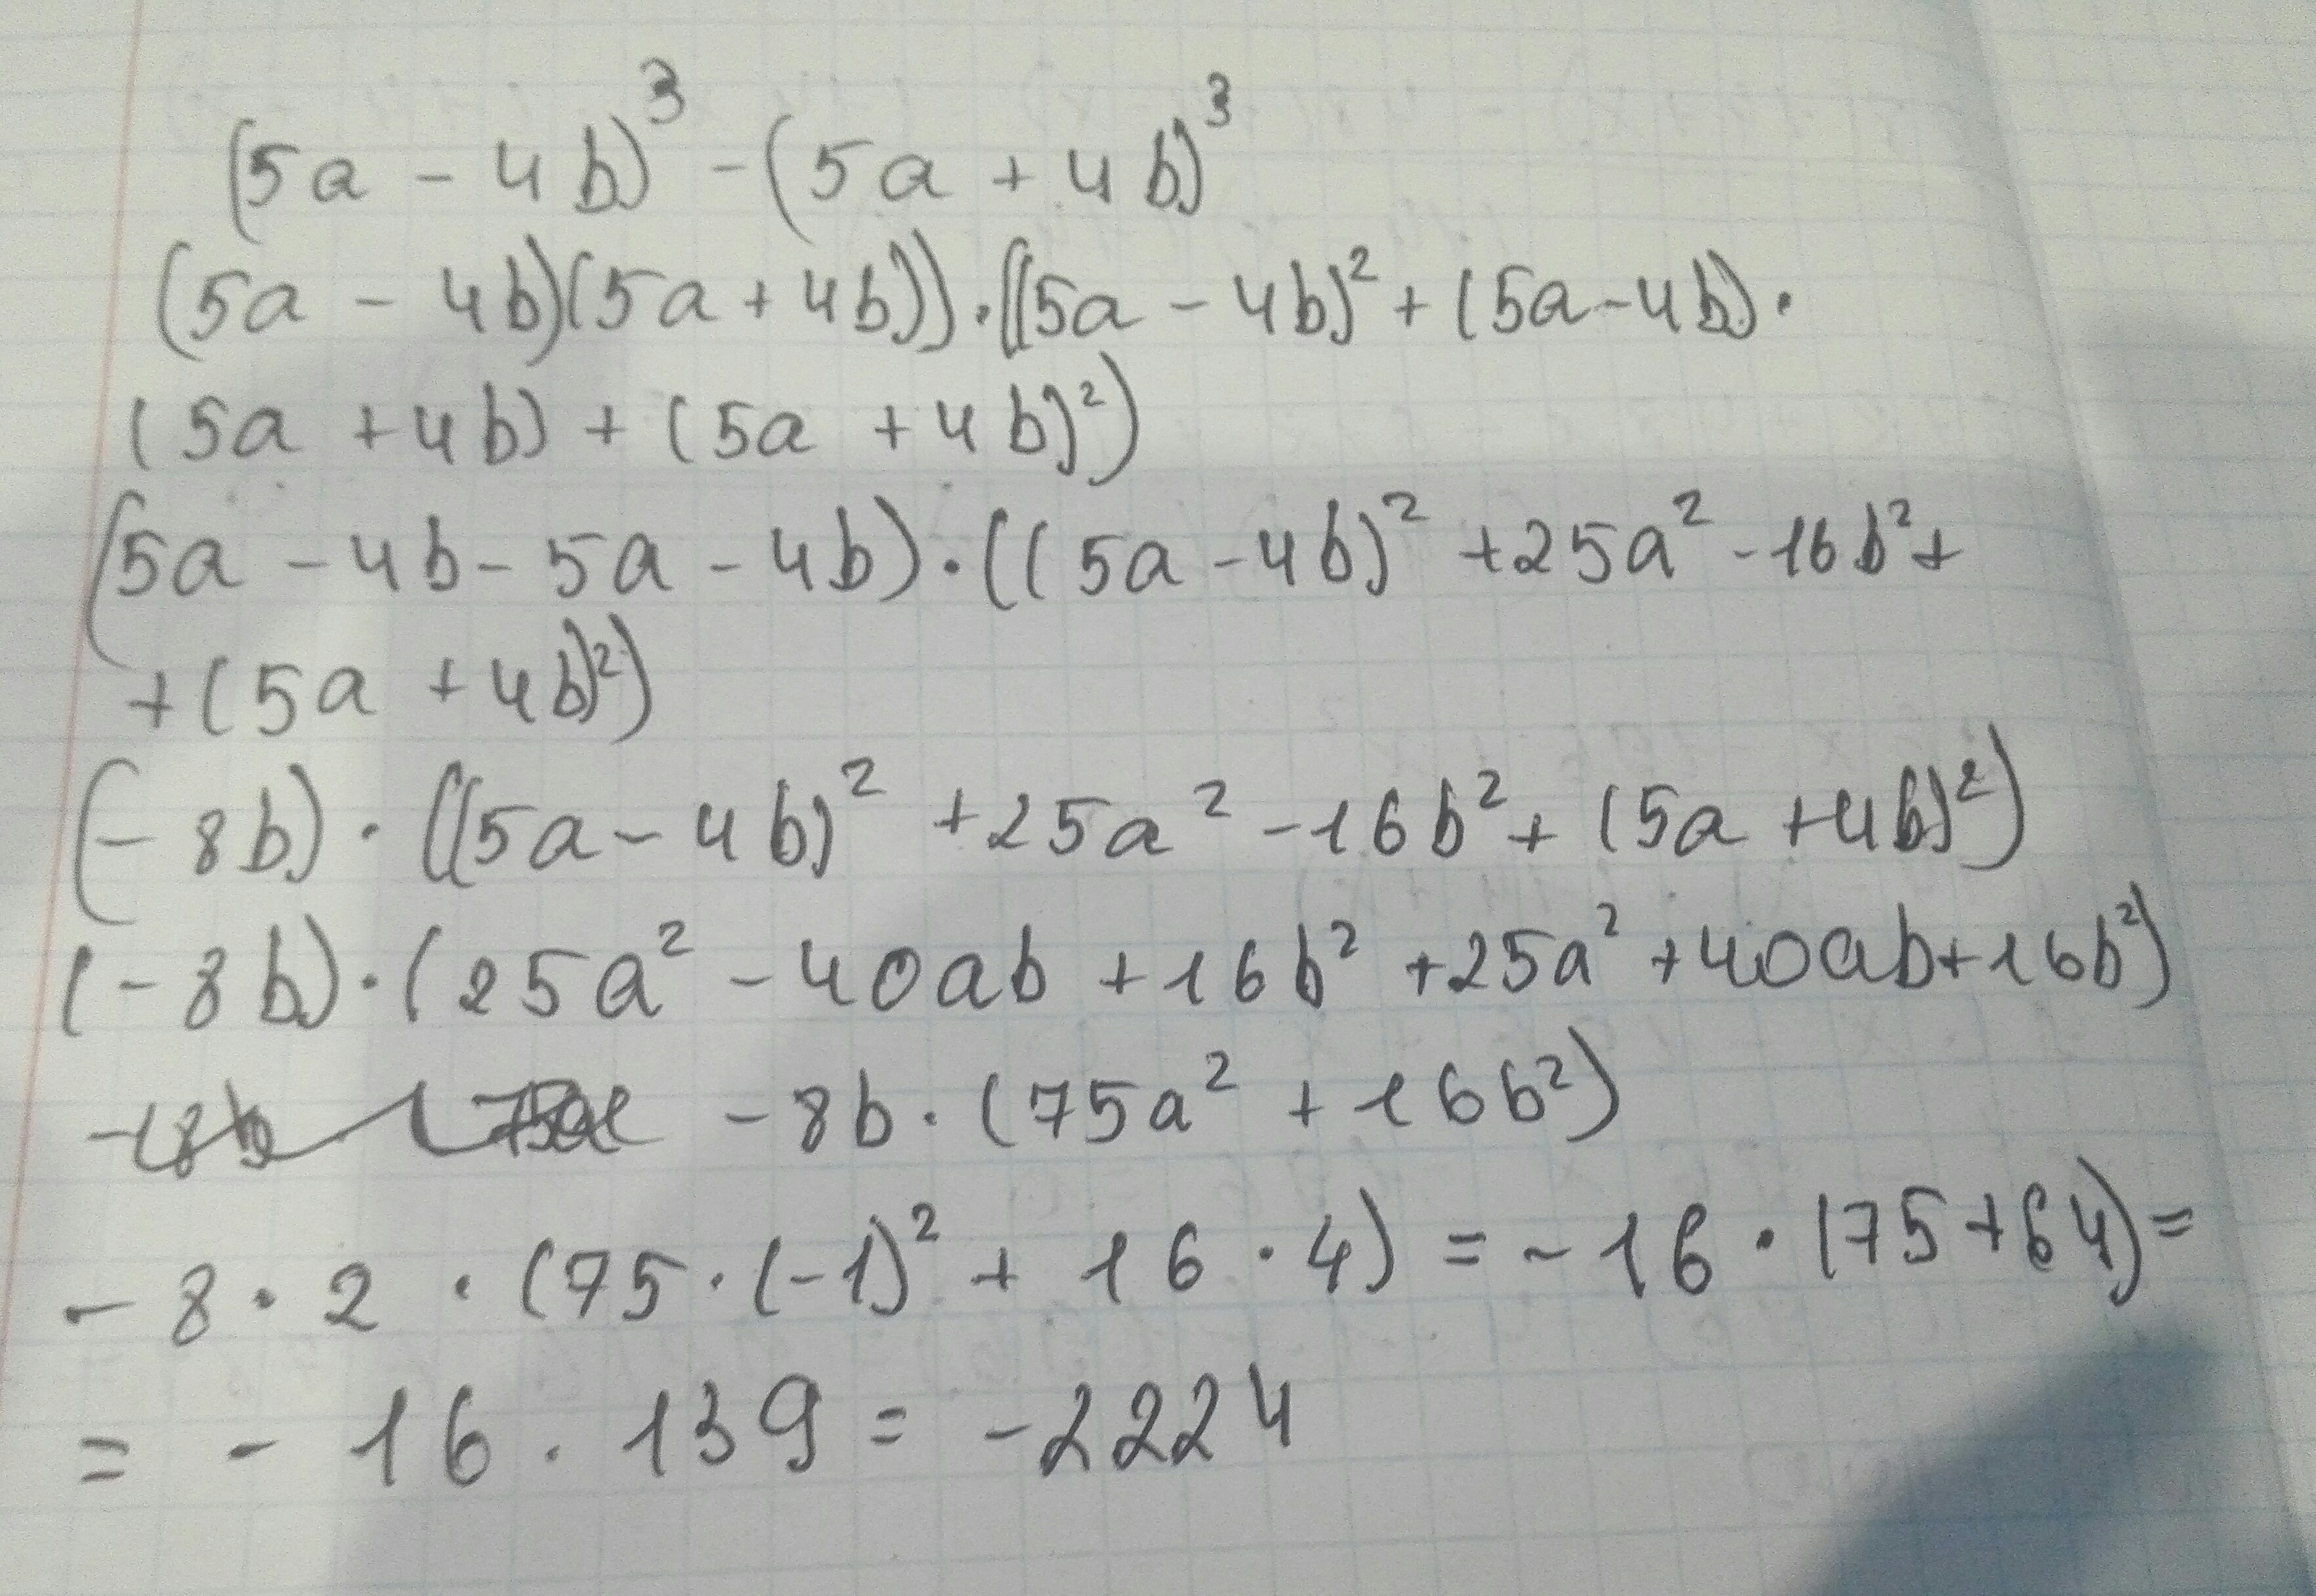 (5a - 4b)³ - (5a + 4b)³
(5a - 4b)(5a + 4b))·((5a - 4b)² + (5a - 4b)·
(5a + 4b) + (5a + 4b)²)
(5a - 4b - 5a - 4b)·((5a - 4b)² + 25a² - 16b² +
+ (5a + 4b)²)
(- 8b)·((5a - 4b)² + 25a² - 16b² + (5a + 4b)²)
(- 8b)·(25a² - 40ab + 16b² + 25a² + 40ab + 16b²)
- 8b·(75a² + 16b²)
- 8 · 2 · (75 · (-1)² + 16 · 4) = - 16 · (75 + 64) =
= - 16 . 139 = - 2224